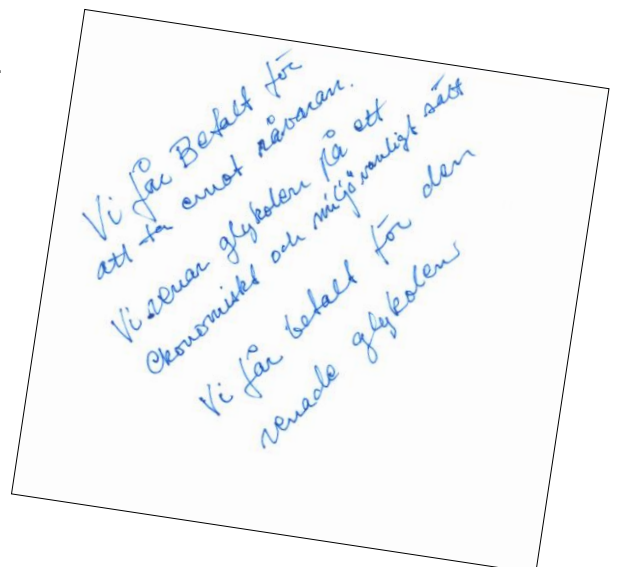 Vi får Betalt för
att ta emot råvaran.
Vi renar glykolen på ett
Ekonomiskt och miljövänligt sätt
Vi får betalt för den
renade glykolen